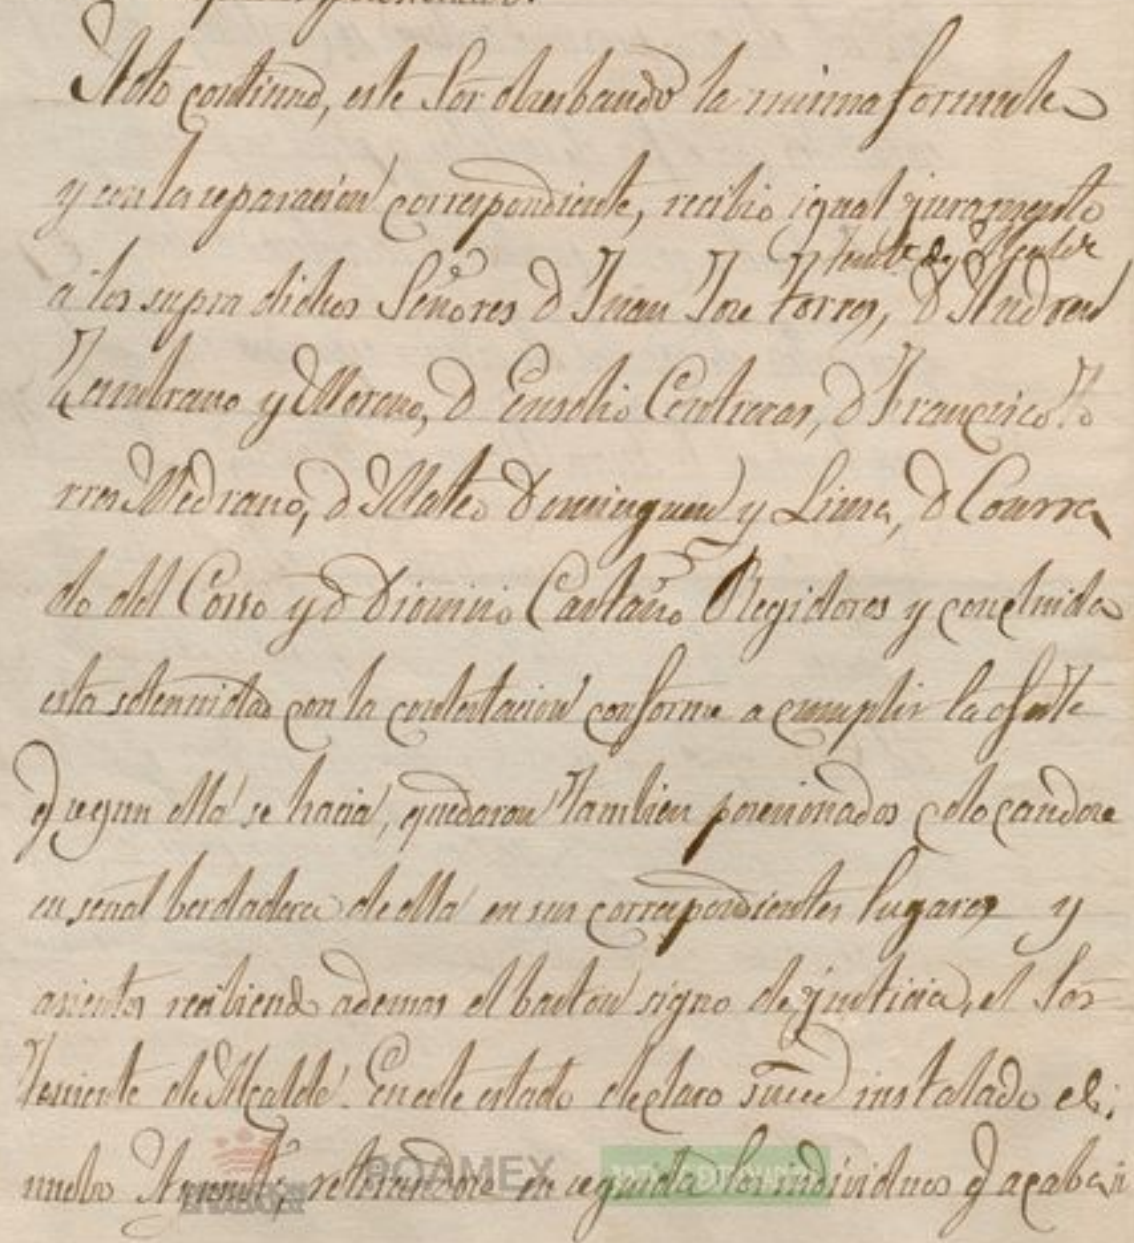 Acto continuo, este Sor obserbando la misma formula
y con la separacion correspondiente, recibio igual juramento
Tente de Alcalde
a los supra dichos Señores D Juan Jose Torres, D Andres
Zambrano y Moreno, D Eusebio Contreras, D Francisco To
rres Medrano, D Mateo Dominguez y Lima, D Conrra
do del Corso y D Dionisio Castaño Regidores y concluida
esta solemnidad con la contestacion conforme a cumplir la oferta
q segun ella se hacia, quedaron tambien posesionados colocandose
en señal berdadera de ella en sus correspondientes lugares y
asientos recibiendo ademas el baston signo de justicia, el Sor
Teniente de Alcalde. En este estado declaro sumed instalado el
nuebo Ayuntto, retirandose en seguida los individuos q acaban
ROAMEX